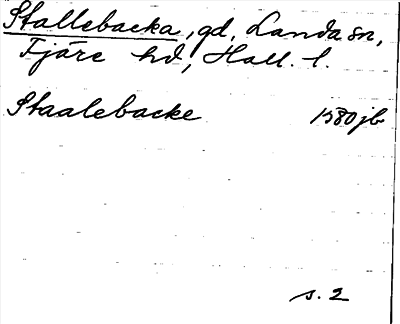 Stallebacka, gd, Landa sn,
Fjäre hd, Hall. l.
Staalebacke 1580 jb
s. 2